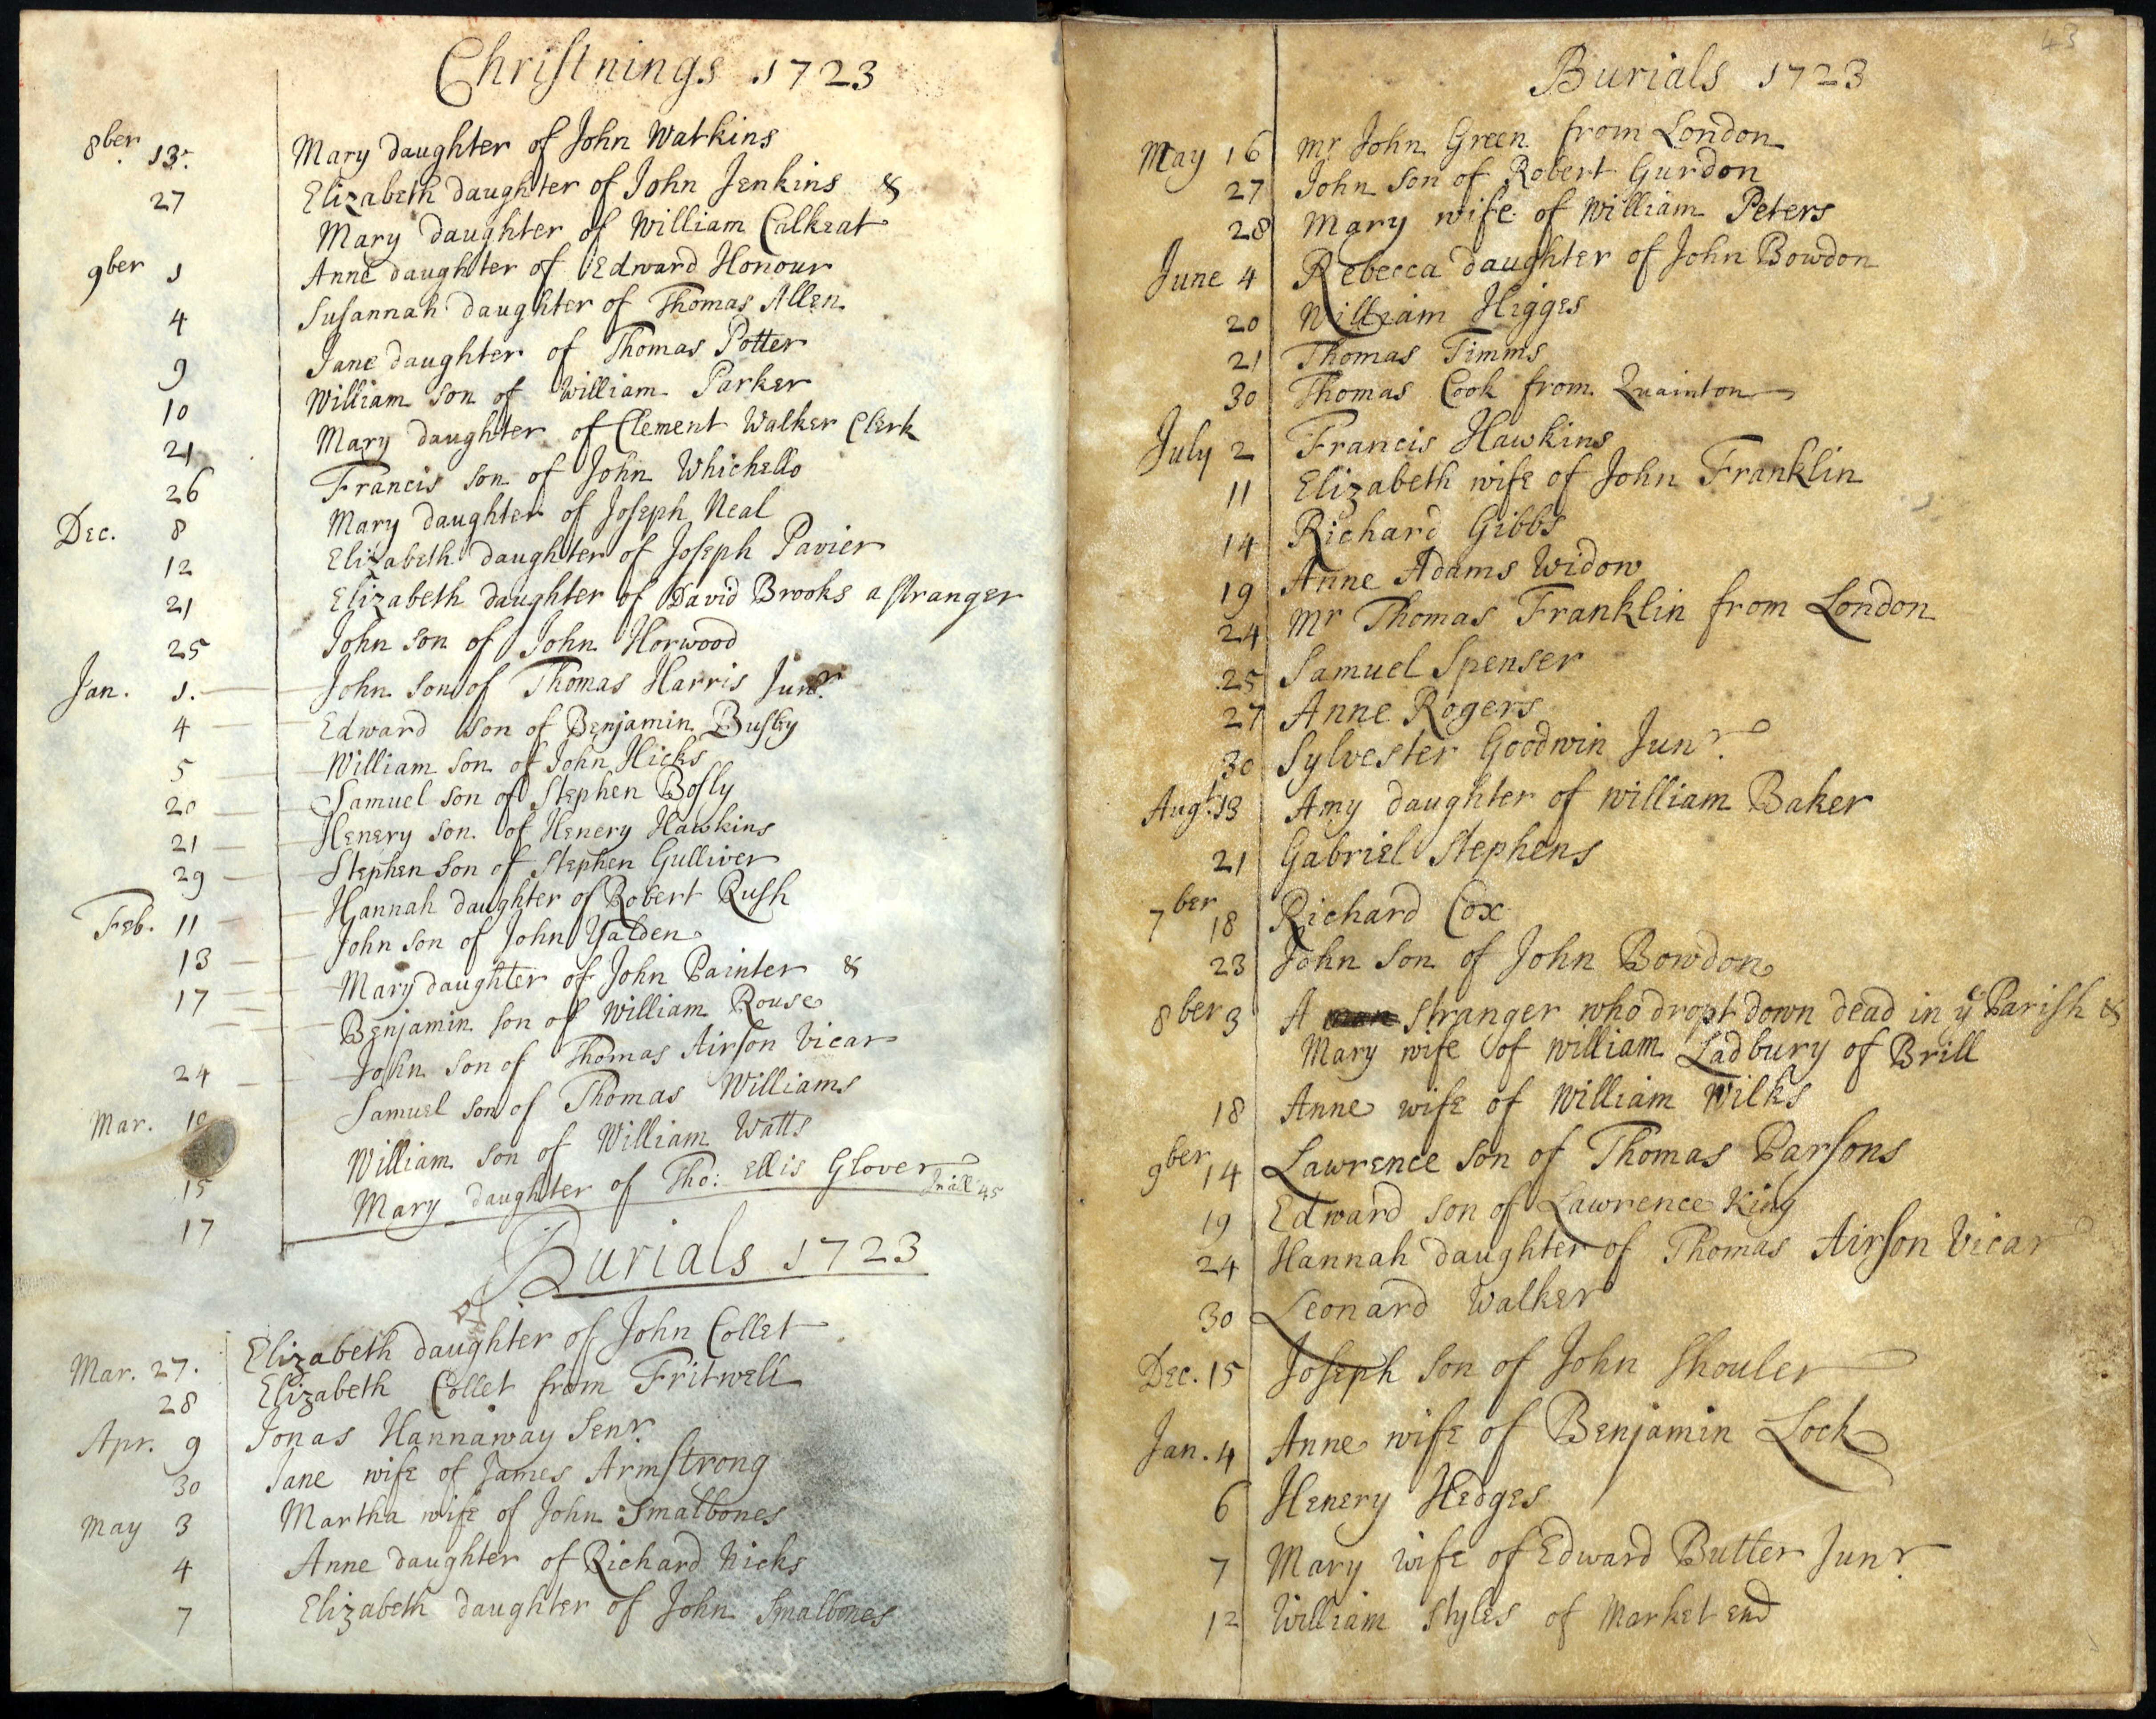 Christnings 1723
8ber 13. Mary daughter of John Watkins
27 Elizabeth daughter of John Jenkins &
Mary daughter of William Calkeat
9ber 1 Anne daughter of Edward Honour
4 Susannah daughter of Thomas Allen
9 Jane daughter of Thomas Potter
10 William son of William Parker
21 Mary daughter of Clement Walker Clerk
26 Francis son of John Whichello
Dec. 8 Mary daughter of Joseph Neal
12 Elizabeth daughter of Joseph Pavier
21 Elizabeth daughter of David Brooks a stranger
25 John son of John Horwood
Jan. 1. John son of Thomas Harris Junr.
4 Edward son of Benjamin Busby
5 William son of John Hicks
20 Samuel son of Stephen Bosly
21 Henery son of Henery Hawkins
29 Stephen son of Stephen Gulliver
Feb. 11 Hannah daughter of Robert Rush
13 John son of John Yalden
17 Mary daughter of John Painter &
Benjamin son of William Rouse
24 John son of Thomas Airson Vicar
Mar. 10 Samuel son of Thomas Williams
15 William son of William Watts
17 Mary daughter of Tho: Ellis Glover
In all 45
Burials 1723
Mar. 27. Elizabeth daughter of John Collet
28 Elizabeth Collet from Fritwell
Apr. 9 Jonas Hannaway Senr.
30 Jane wife of James Armstrong
May 3 Martha wife of John Smalbones
4 Anne daughter of Richard Nicks
7 Elizabeth daughter of John Smalbones
43
Burials 1723
May 16 Mr John Green from London
27 John son of Robert Gurdon
28 Mary wife of William Peters
June 4 Rebecca daughter of John Bowdon
20 William Higges
21 Thomas Timms
30 Thomas Cook from Quainton
July 2 Francis Hawkins
11 Elizabeth wife of John Franklin
14 Richard Gibbs
19 Anne Adams Widow
24 Mr Thomas Franklin from London
25 Samuel Spenser
27 Anne Rogers
30 Sylvester Goodwin Junr.
Augt. 13 Amy daughter of William Baker
21 Gabriel Stephens
7ber 18 Richard Cox
23 John son of John Bowdon
8ber 3 A stranger who dropt down dead in ye Parish &
Mary wife of William Ladbury of Brill
18 Anne wife of William Wilks
9ber 14 Lawrence son of Thomas Parsons
19 Edward son of Lawrence King
24 Hannah daughter of Thomas Airson Vicar
30 Leonard Walker
Dec. 15 Joseph son of John Shouler
Jan. 4 Anne wife of Benjamin Lock
6 Henery Hedges
7 Mary wife of Edward Butler Junr.
12 William Styles of Market end